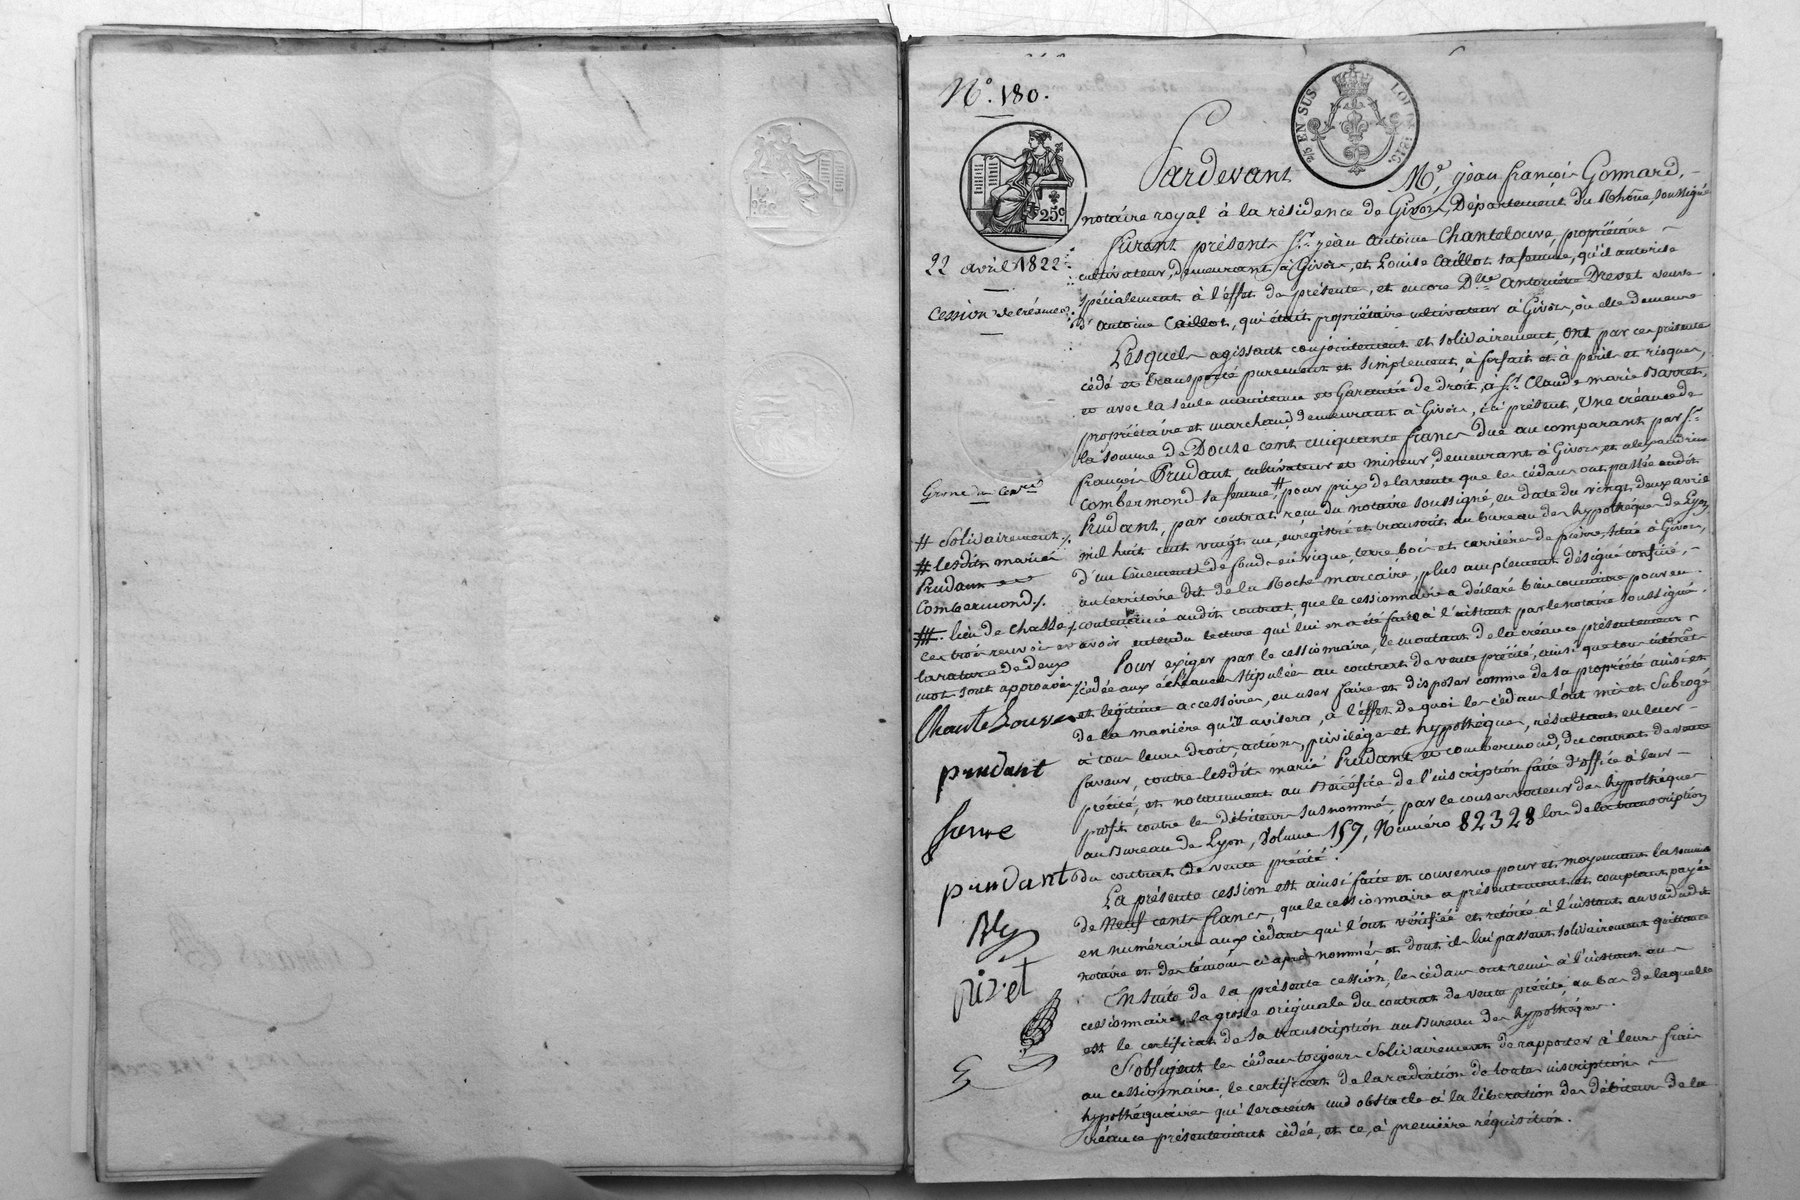 N.° 180.
25 EN SUS LOI DE 1816.
25c.
22 avril 1822
Cession de créance
Pardevant M.e jean françois Gonnard,
notaire royal à la résidence de Givors, Département du Rhône, soussigné
furent présents S.r jean Antoine Chantelouve, propriétaire
cultivateur, demeurant à Givors, et Louise Caillot sa femme, qu'il autorise
spécialement à l'effet des présentes, et encore D.lle Antoinette Drevet veuve
d'Antoine Caillot, qui était propriétaire cultivateur à Givors, où elle demeure
Lesquels agissant conjointement et solidairement, ont par ces présentes
cédé et transporté purement et simplement, à forfait et à périls et risques,
et avec la seule maintenue et Garantie de droit, à S.r Claude marie Barret,
propriétaire et marchand demeurant à Givors, ici présent, Une créance de
la somme de Douze cent cinquante francs due aux comparants par S.r
françois Prudant cultivateur et mineur, demeurant à Givors, et alexandrine
Combermond sa femme, # pour prix de la vente que les cédants ont passée audit
Prudant, par contrat reçu du notaire soussigné en date du vingt deux avril
mil huit cent vingt un, enregistré et transcrit au bureau des hypothèques de Lyon,
d'un tènement de fonds en vigne, terre, bois et carrière de pierre, situé à Givors,
au territoire dit de la Roche marcaire, plus amplement désigné confiné,
contenancé audit contrat, que le cessionnaire a déclaré bien connaître pour en
avoir entendu lecture qui lui en a été faite à l'instant par le notaire soussigné.
Pour exiger par le cessionnaire, le montant de la créance présentement
cédée aux échéances stipulées au contrat de vente précité, ainsi que tous intérêts
et légitimes accessoires, en user faire et disposer comme de sa propriété ainsi et
de la manière qu'il avisera, à l'effet de quoi les cédants l'ont mis et Subrogé
à tous leurs droits, actions, privilège et hypothèques, résultant en leur
faveur, contre lesdits mariés Prudant et combermond, du contrat de vente
précité, et notamment au Bénéfice de l'inscription faite d'office à leur
profit contre les débiteurs susnommés, par le conservateur des hypothèques
au Bureau de Lyon, Volume 157, Numéro 82328 lors de la transcription
du contrat de vente précité.
La présente cession est ainsi faite et convenue pour et moyennant la somme
de Neuf cents francs, que le cessionnaire a présentement et comptant payée
en numéraire aux cédants qui l'ont vérifiée et retirée à l'instant au vu dudit
notaire et des témoins ci après nommés et dont ils lui passent solidairement quittance
En suite de la présente cession, les cédants ont remis à l'instant au
cessionnaire, la grosse originale du contrat de vente précité, au bas de laquelle
est le certificat de sa transcription au Bureau des hypothèques.
S'obligent les cédants toujours Solidairement de rapporter à leurs frais
au cessionnaire, le certificat de la radiation de toutes inscriptions
hypothécaires qui seraient mis obstacle à la libération des débiteurs de la
créance présentement cédée, et ce, à première réquisition.
# Solidairement /.
# lesdits mariés
Prudant et
Combermond /.
#. lieu de chasse /.
Ces trois renvois et
la rature de deux
mots sont approuvés /.
Chantelouve
prudant
femme
prudant
Bly
rivet